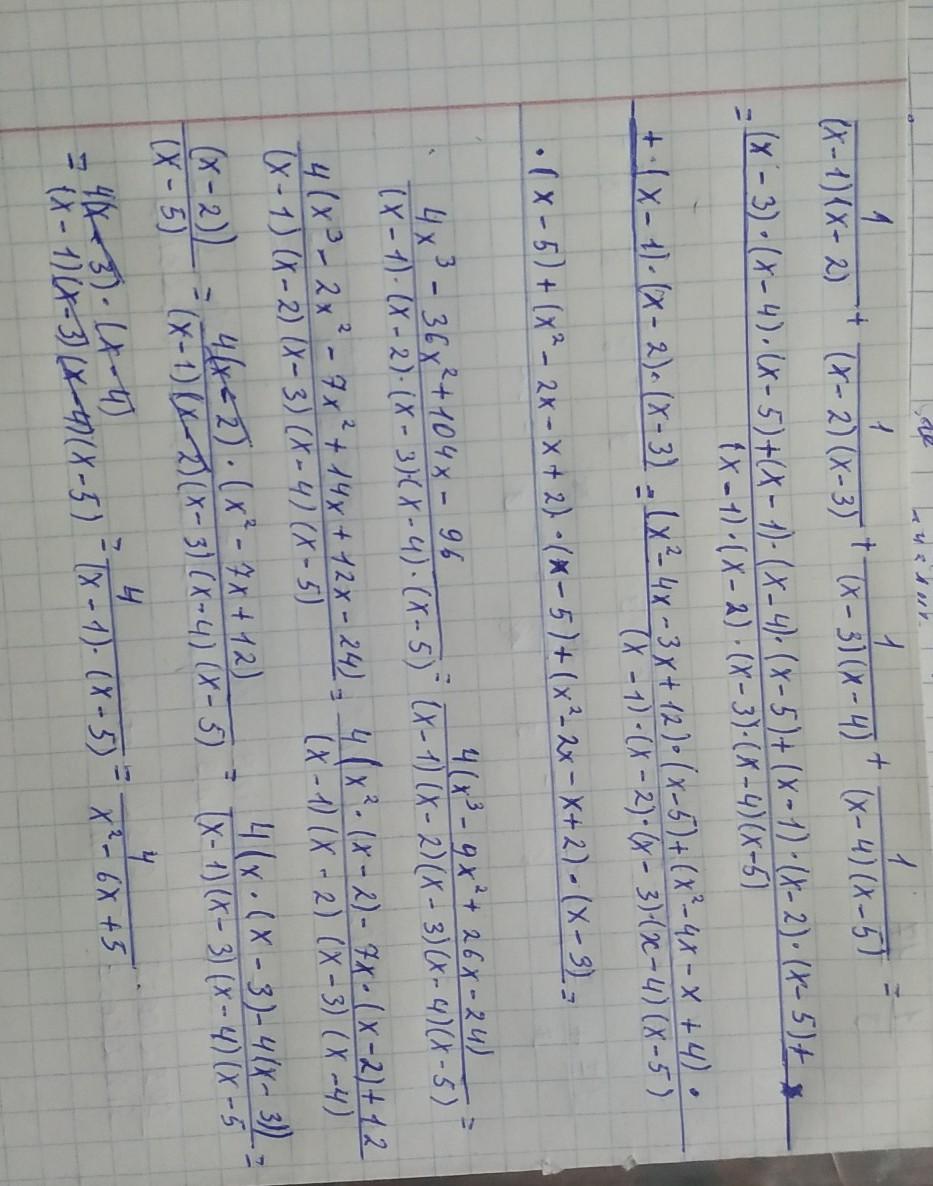 1/((x-1)(x-2)) + 1/((x-2)(x-3)) + 1/((x-3)(x-4)) + 1/((x-4)(x-5)) =
= (x-3)·(x-4)·(x-5)+(x-1)·(x-4)·(x-5)+(x-1)·(x-2)·(x-5)+
(x-1)·(x-2)·(x-3)·(x-4)(x-5)
+·(x-1)·(x-2)·(x-3) = (x²-4x-3x+12)·(x-5)+(x²-4x-x+4)·
(x-1)·(x-2)·(x-3)·(x-4)(x-5)
·(x-5)+(x²-2x-x+2)·(x-5)+(x²-2x-x+2)·(x-3) =
(4x³-36x²+104x-96)/((x-1)·(x-2)·(x-3)(x-4)·(x-5)) = 4(x³-9x²+26x-24)/((x-1)(x-2)(x-3)(x-4)(x-5)) =
4(x³-2x²-7x²+14x+12x-24)/((x-1)(x-2)(x-3)(x-4)(x-5)) = 4(x²·(x-2)-7x·(x-2)+12
(x-1)(x-2)(x-3)(x-4)
(x-2))/(x-5) = 4(x-2)·(x²-7x+12)/((x-1)(x-2)(x-3)(x-4)(x-5)) = 4(x·(x-3)-4(x-3))/((x-1)(x-3)(x-4)(x-5 =
= 4(x-3)·(x-4)/((x-1)(x-3)(x-4)(x-5)) = 4/((x-1)·(x-5)) = 4/(x²-6x+5)